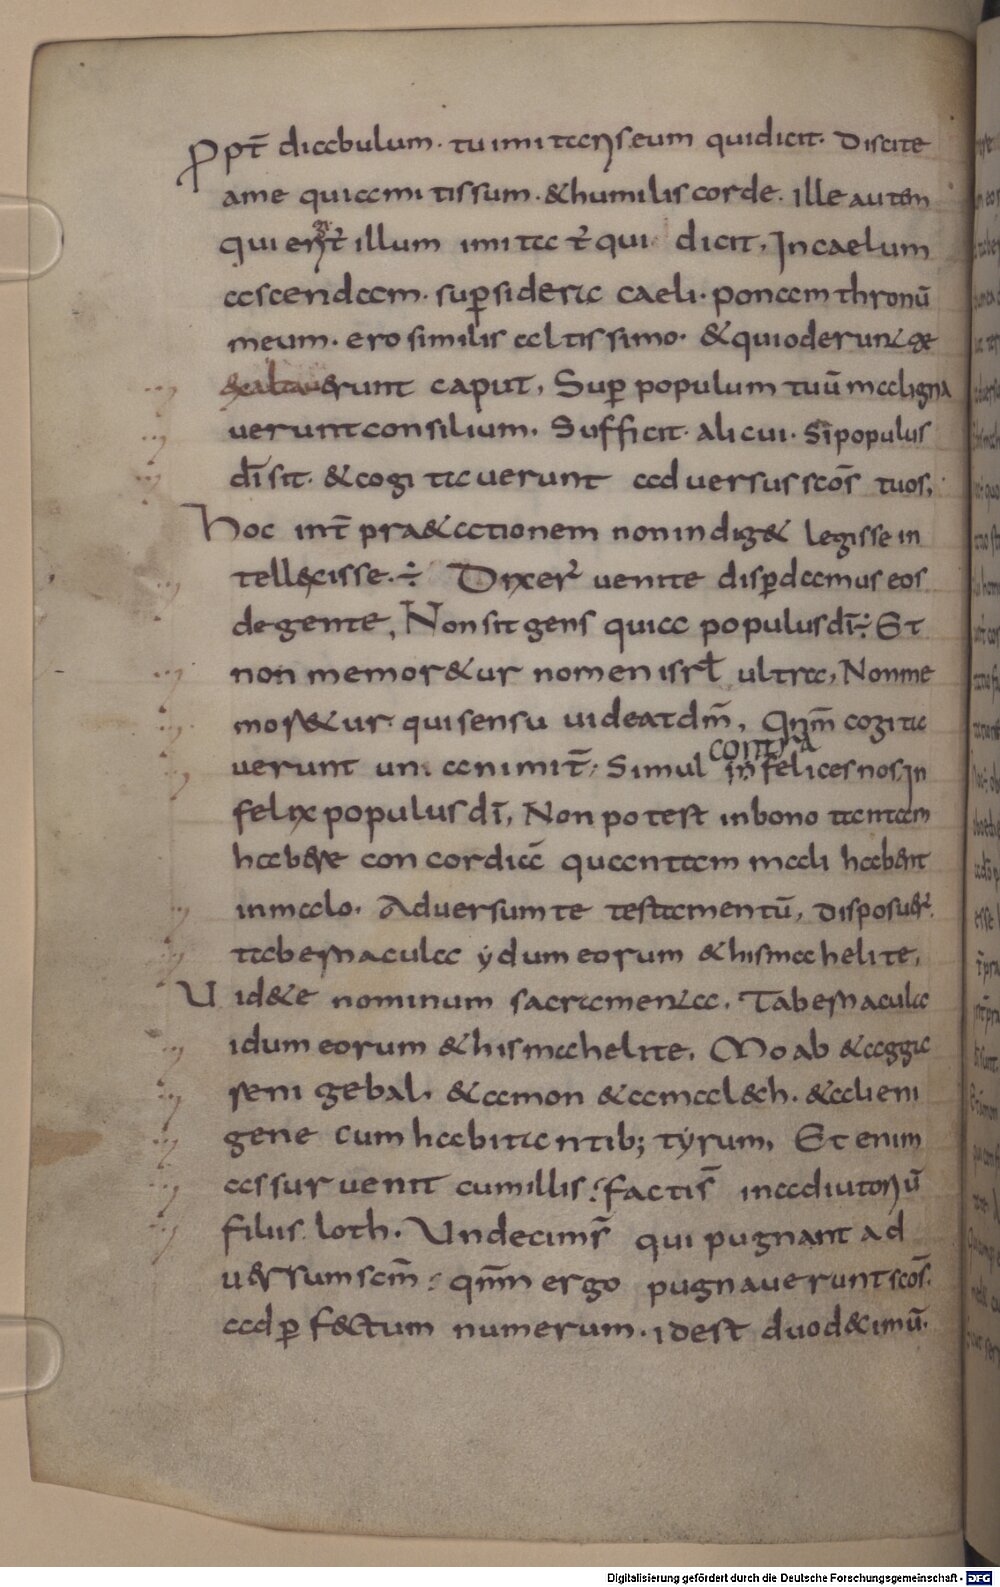 Ppt̄ diabulum. tu imitaris eum qui dicit. Discite
a me quia mitis sum. & humilis corde. Ille autem
qui illum imitat̄ qui dicit, In caelum
ascendam. sup̱ sidera caeli. ponam thronū
meum. ero similis altissimo. & qui oderunt
&altaverunt caput, Sup̱ populum tuū maligna
verunt consilium. Sufficit. alicui. Si populus
dī sit. & cogitaverunt adversus scōs tuos,
Hoc int̄ pra&actionem non indig& legisse in
tell&cisse. ÷ Dixer̄ venite disp̱damus eos
de gente, Non sit gens quia populus dī÷ Et
non memor&ur nomen isrƚ ultra, Non me
mor&ur qui sensu videat dm̄, Qnm̄ cogita
verunt unanimit̄, Simul contra infelices nos. In
felix populus dī, Non potest in bono tantam
habere concordiā quantam mali habent
in malo. Adversum te testamentū, disposuer̄
tabernacula ydumeorum & hismahelite,
Vid&e nominum sacramenta. Tabernacula
idumeorum & hismahelite, Moab & agga
reni gebal, & amon & amal&h. & alieni
gene cum habitantib; tyrum, Et enim
assur venit cum illis: factis̄ in adiutoriū
filiis loth. Undecims̄ qui pugnant ad
versum scm̄: qnm̄ ergo pugnaverunt scōs.
ad p̱f&ctum numerum. id est duod&imū.
Digitalisierung gefördert durch die Deutsche Forschungsgemeinschaft - DFG